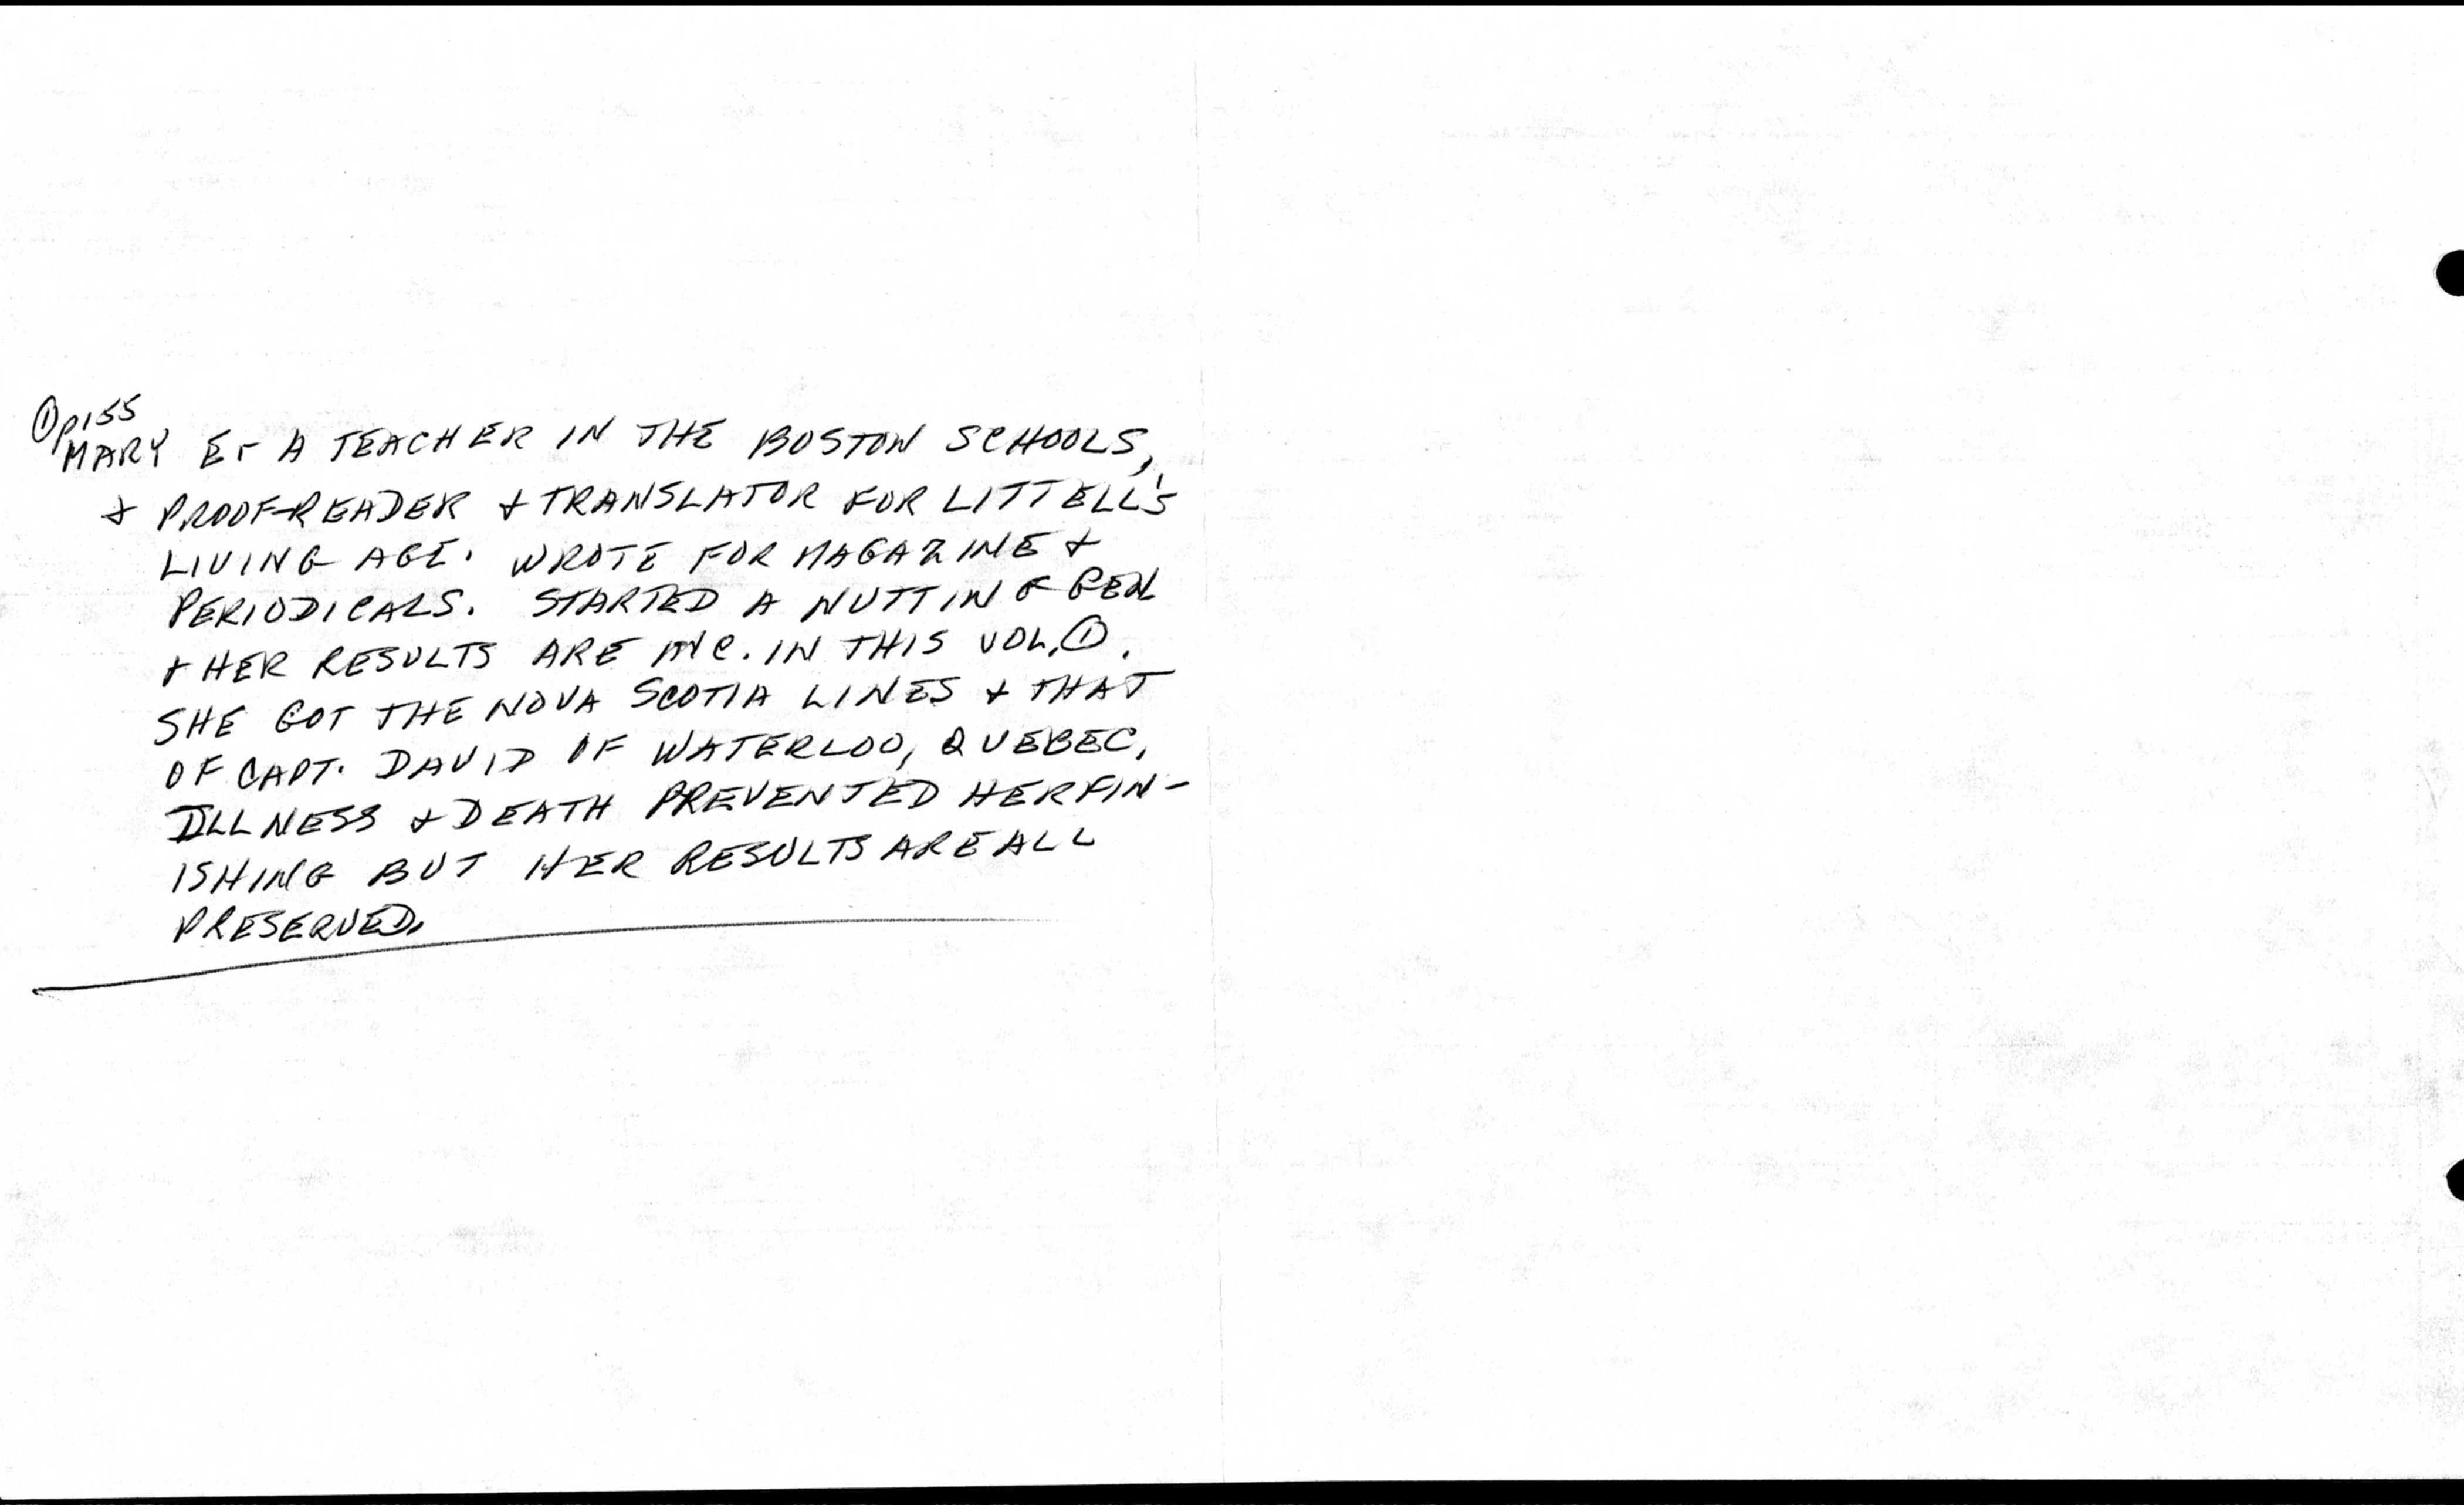 ① p155
MARY E - A TEACHER IN THE BOSTON SCHOOLS,
+ PROOF-READER + TRANSLATOR FOR LITTELL'S
LIVING AGE. WROTE FOR MAGAZINE +
PERIODICALS. STARTED A NUTTING GEN
+ HER RESULTS ARE INC. IN THIS VOL, ①.
SHE GOT THE NOVA SCOTIA LINES + THAT
OF CAPT. DAVID OF WATERLOO, QUEBEC.
ILLNESS + DEATH PREVENTED HER FIN-
ISHING BUT HER RESULTS ARE ALL
PRESERVED.